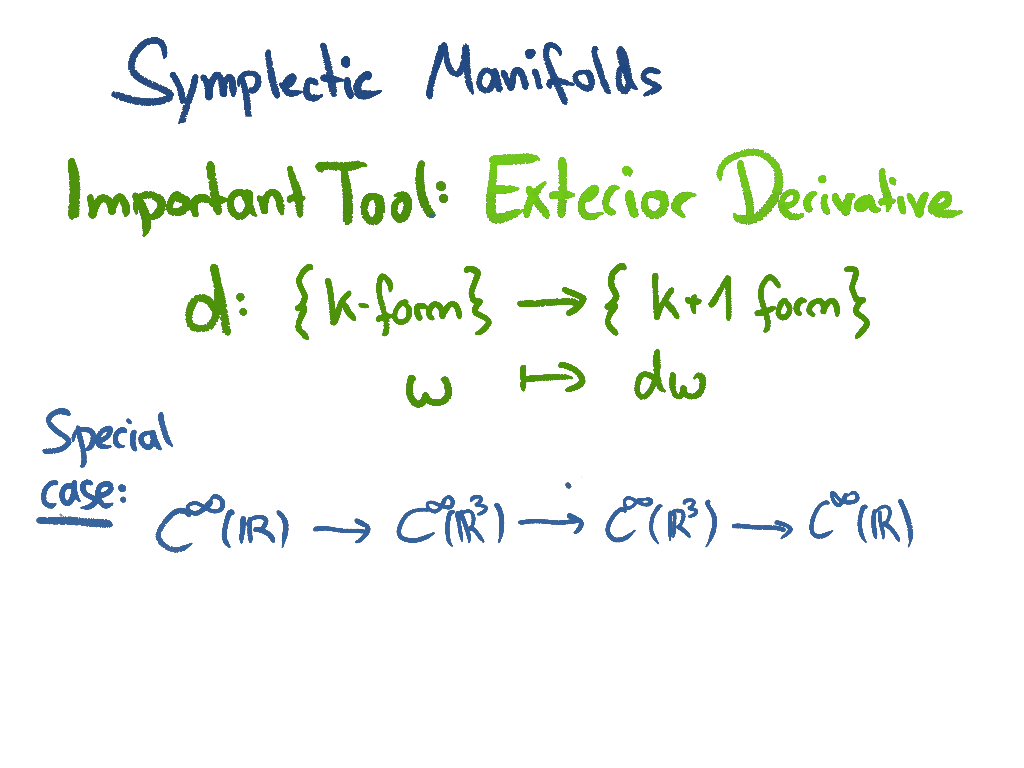 Symplectic Manifolds
Important Tool: Exterior Derivative
d: {k-form} → {k+1 form}
ω ↦ dω
Special
case:
C^∞(ℝ) → C^∞(ℝ³) → C^∞(ℝ³) → C^∞(ℝ)